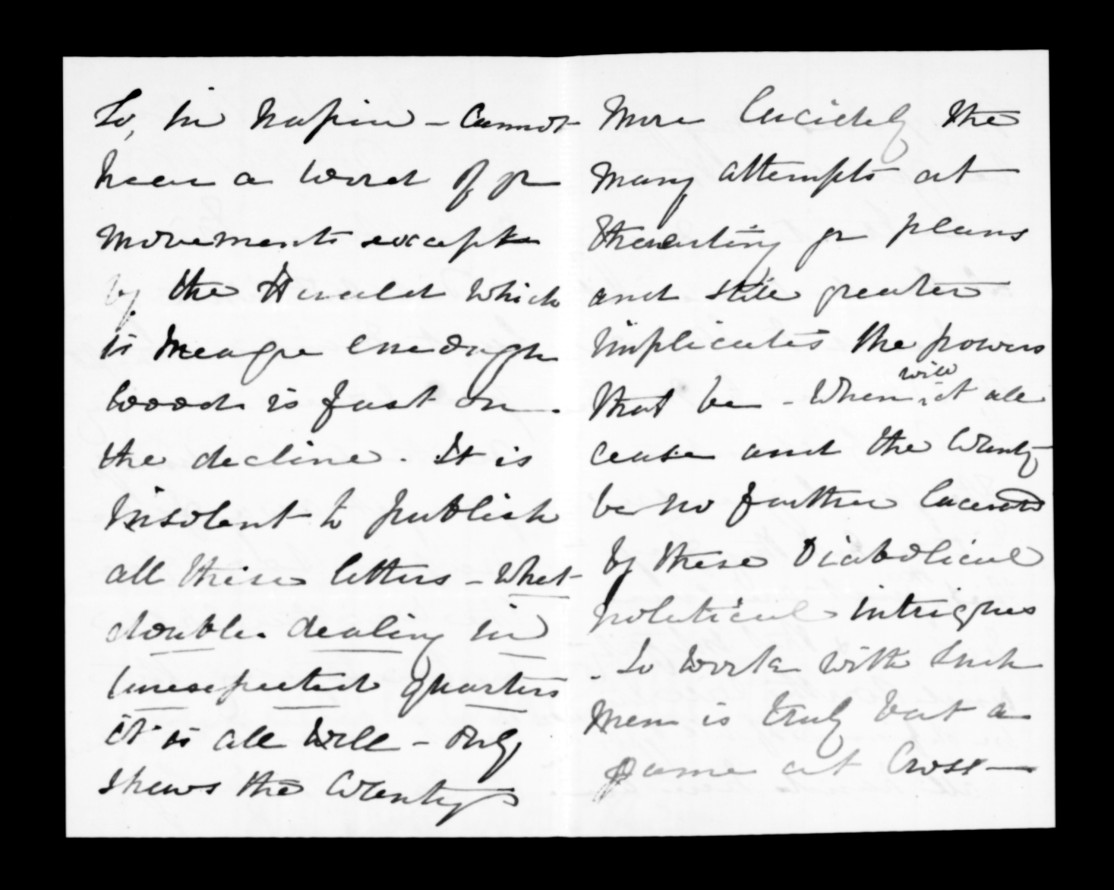 To, in Napier - Cannot
hear a word of yr
movements except
by the Herald which
is meagre enough
Wood is fast on
the decline. It is
insolent to publish
all these letters - What
double dealing in
unexpected quarters
it is all well - only
shews the Country
more lucidly the
many attempts at
thwarting yr plans
and still greater
implicates the powers
that be - When will it all
cease and the Country
be no further lacerated
by these Diabolical
political intrigues
. To work with such
men is truly but a
game at Cross-